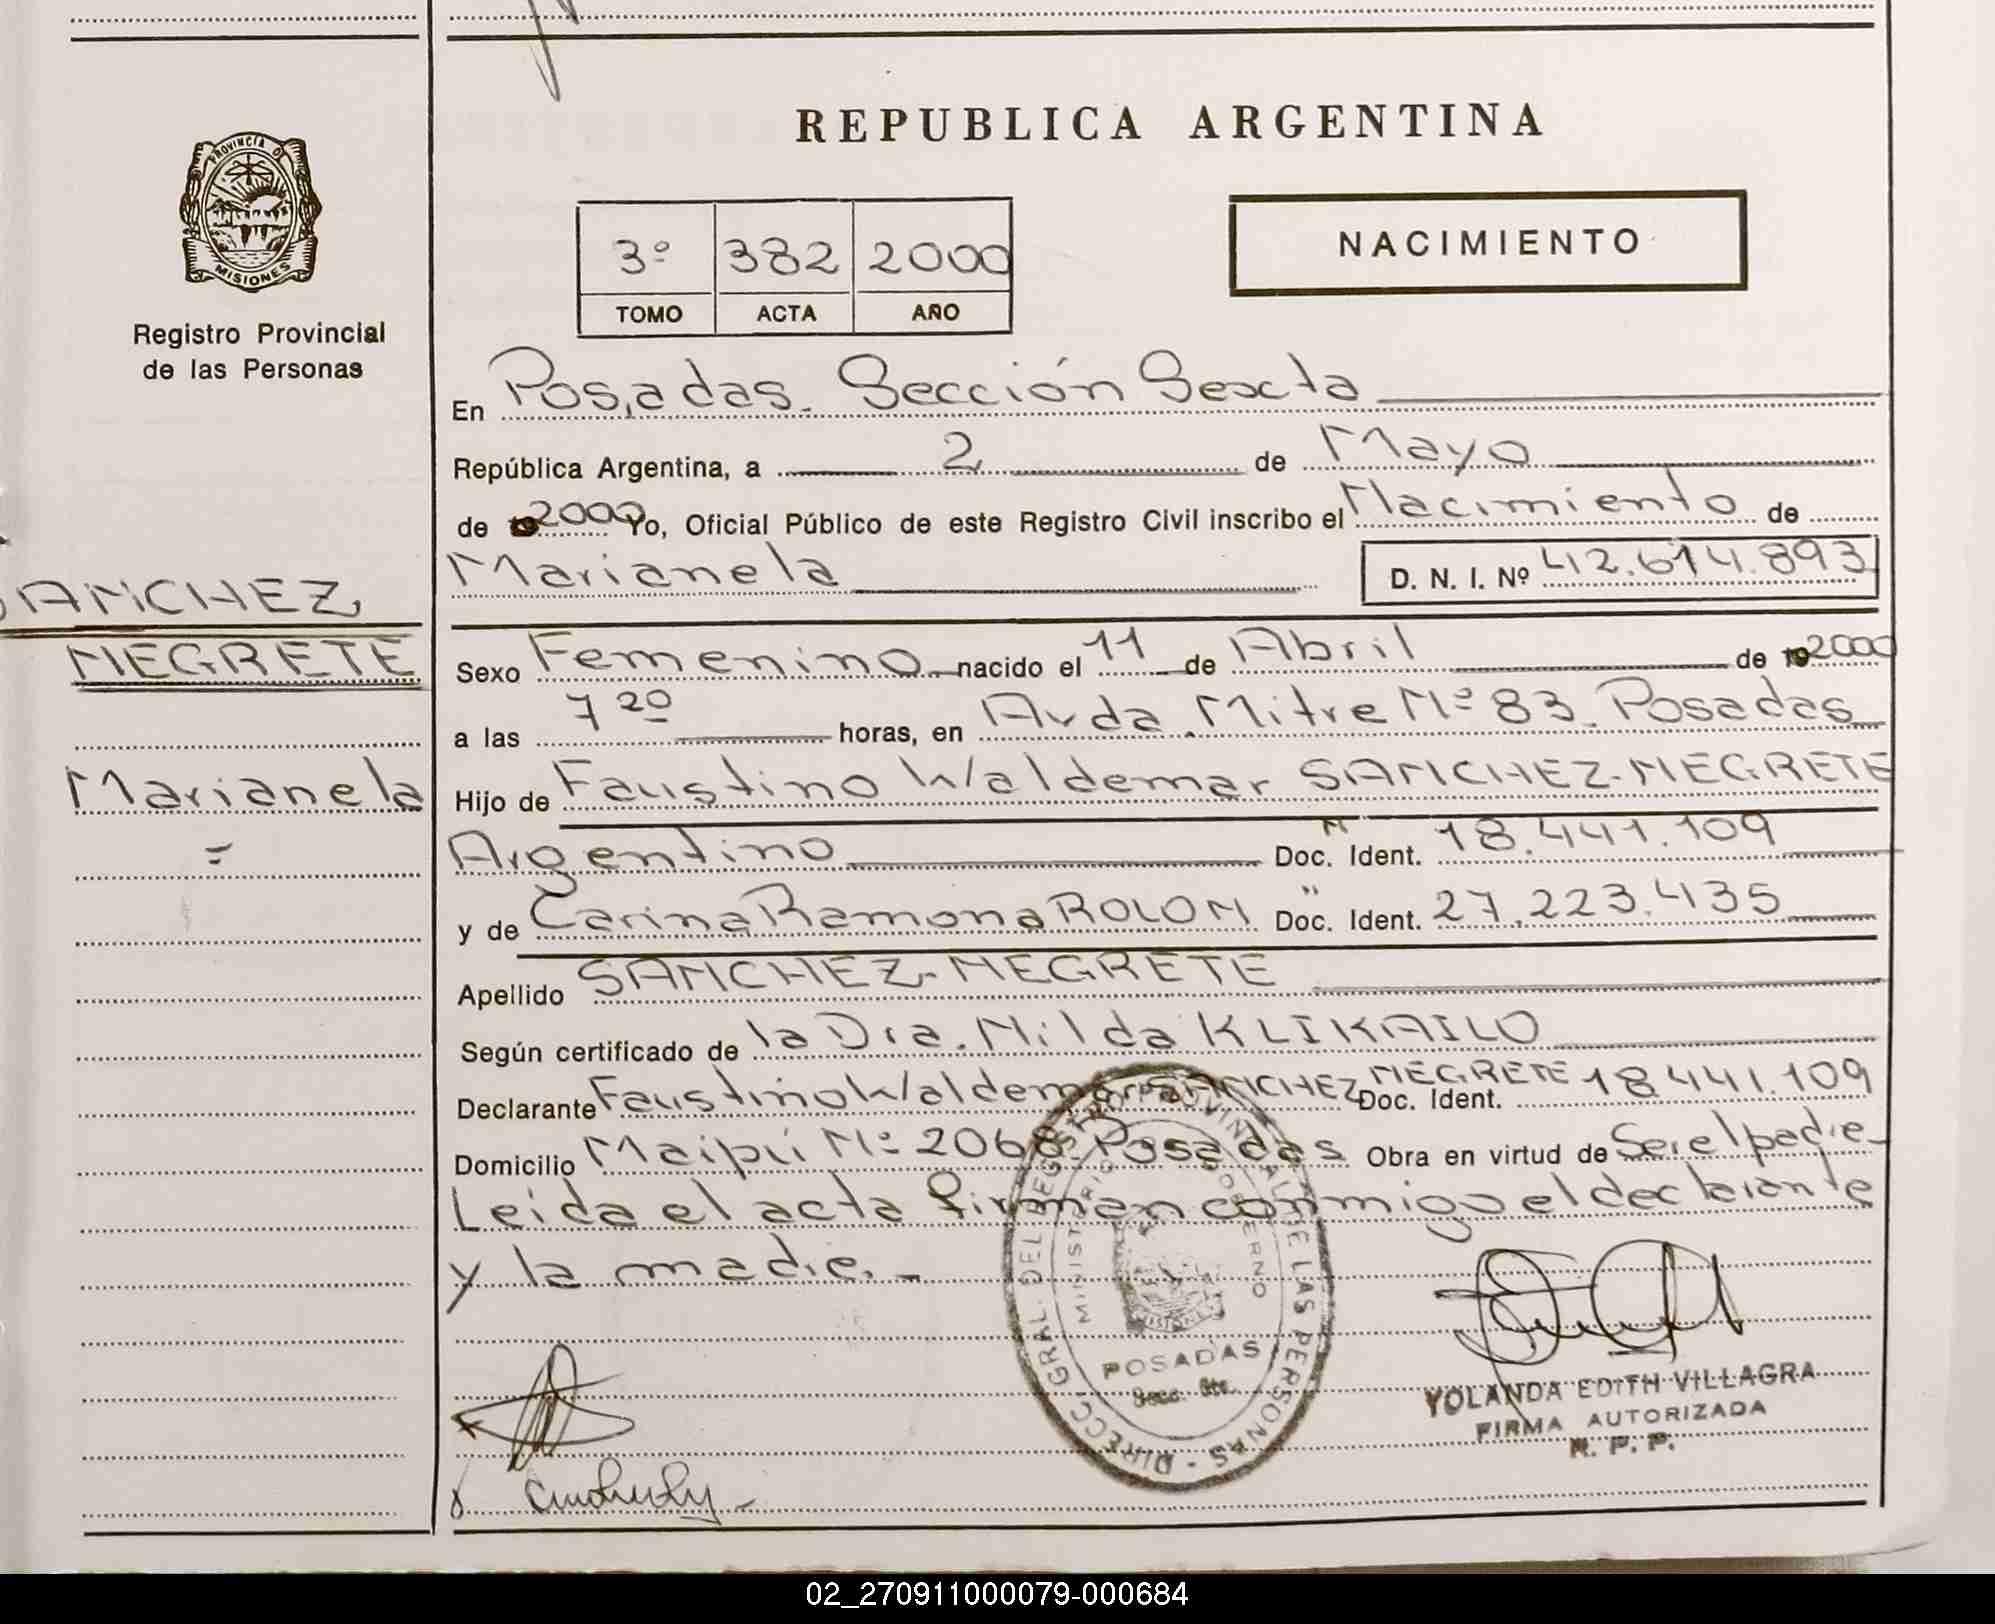 REPUBLICA ARGENTINA
PROVINCIA DE
MISIONES
Registro Provincial
de las Personas
3º 382 2000
TOMO ACTA AÑO
NACIMIENTO
En Posadas. Sección Sexta
República Argentina, a 2 de Mayo
de 2000 Yo, Oficial Público de este Registro Civil inscribo el Nacimiento de
Marianela D. N. I. Nº 42.614.893
SANCHEZ
NEGRETE
Marianela
=
Sexo Femenino nacido el 11 de Abril de 2000
a las 7 20 horas, en Avda. Mitre Nº 83. Posadas
Hijo de Faustino Waldemar SANCHEZ-NEGRETE
Argentino Doc. Ident. 18.441.109
y de Carina Ramona ROLON Doc. Ident. 27.223.435
Apellido SANCHEZ-NEGRETE
Según certificado de la Dra. Nilda KLIKAILO
Declarante Faustino Waldemar SANCHEZ NEGRETE Doc. Ident. 18.441.109
Domicilio Maipú Nº 2068 Posadas Obra en virtud de Ser el padre
Leida el acta firman conmigo el declarante
y la madre.-
DIRECC. GRAL. DEL REGISTRO PROVINCIAL DE LAS PERSONAS -
MINISTERIO GOBIERNO
MISIONES
POSADAS
Secc. 6ta.
YOLANDA EDITH VILLAGRA
FIRMA AUTORIZADA
R. P. P.
02_270911000079-000684